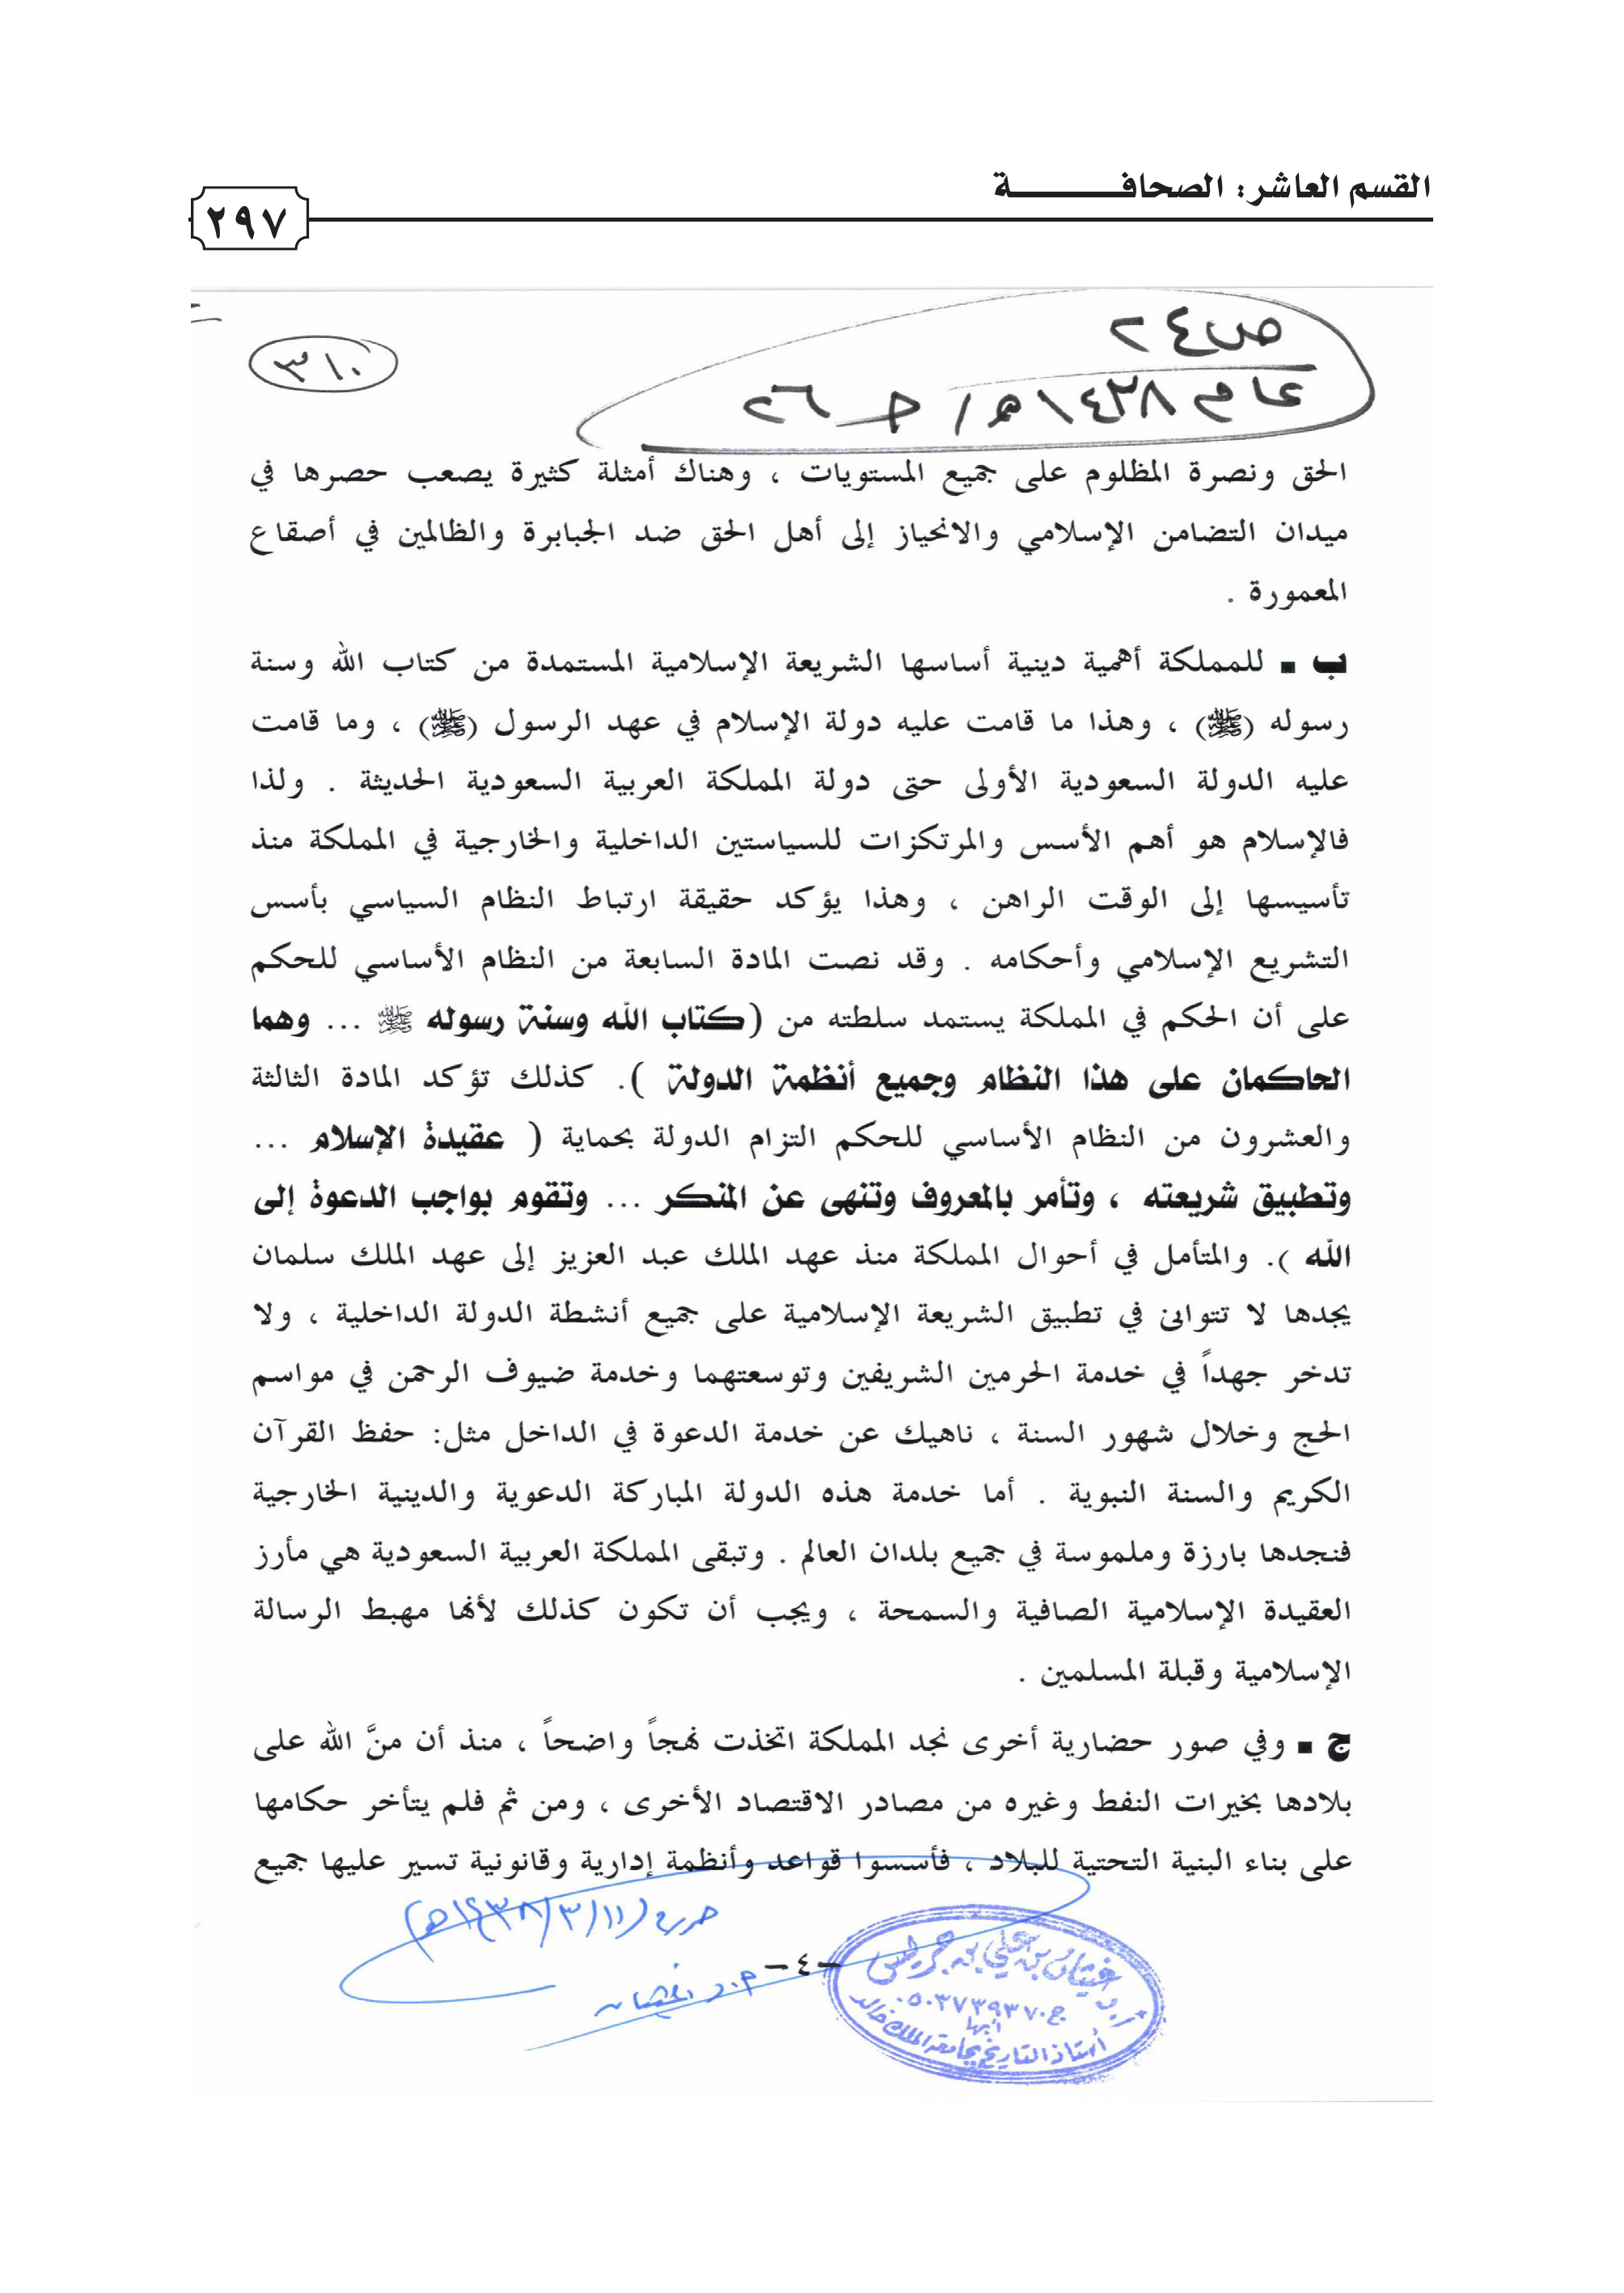 القسم العاشر: الصحافـــــــــــة
٢٩٧
ص٢٤
عام ١٤٣٨هـ / جـ ٢٦
٣١٠
الحق ونصرة المظلوم على جميع المستويات ، وهناك أمثلة كثيرة يصعب حصرها في
ميدان التضامن الإسلامي والانحياز إلى أهل الحق ضد الجبابرة والظالمين في أصقاع
المعمورة .
ب ■ للمملكة أهمية دينية أساسها الشريعة الإسلامية المستمدة من كتاب الله وسنة
رسوله (ﷺ) ، وهذا ما قامت عليه دولة الإسلام في عهد الرسول (ﷺ) ، وما قامت
عليه الدولة السعودية الأولى حتى دولة المملكة العربية السعودية الحديثة . ولذا
فالإسلام هو أهم الأسس والمرتكزات للسياستين الداخلية والخارجية في المملكة منذ
تأسيسها إلى الوقت الراهن ، وهذا يؤكد حقيقة ارتباط النظام السياسي بأسس
التشريع الإسلامي وأحكامه . وقد نصت المادة السابعة من النظام الأساسي للحكم
على أن الحكم في المملكة يستمد سلطته من (كتاب الله وسنة رسوله ﷺ ... وهما
الحاكمان على هذا النظام وجميع أنظمة الدولة ). كذلك تؤكد المادة الثالثة
والعشرون من النظام الأساسي للحكم التزام الدولة بحماية ( عقيدة الإسلام ...
وتطبيق شريعته ، وتأمر بالمعروف وتنهى عن المنكر ... وتقوم بواجب الدعوة إلى
الله ). والمتأمل في أحوال المملكة منذ عهد الملك عبد العزيز إلى عهد الملك سلمان
يجدها لا تتوانى في تطبيق الشريعة الإسلامية على جميع أنشطة الدولة الداخلية ، ولا
تدخر جهداً في خدمة الحرمين الشريفين وتوسعتهما وخدمة ضيوف الرحمن في مواسم
الحج وخلال شهور السنة ، ناهيك عن خدمة الدعوة في الداخل مثل: حفظ القرآن
الكريم والسنة النبوية . أما خدمة هذه الدولة المباركة الدعوية والدينية الخارجية
فنجدها بارزة وملموسة في جميع بلدان العالم . وتبقى المملكة العربية السعودية هي مأرز
العقيدة الإسلامية الصافية والسمحة ، ويجب أن تكون كذلك لأنها مهبط الرسالة
الإسلامية وقبلة المسلمين .
ج ■ وفي صور حضارية أخرى نجد المملكة اتخذت نهجاً واضحاً ، منذ أن منَّ الله على
بلادها بخيرات النفط وغيره من مصادر الاقتصاد الأخرى ، ومن ثم فلم يتأخر حكامها
على بناء البنية التحتية للبلاد ، فأسسوا قواعد وأنظمة إدارية وقانونية تسير عليها جميع
(١١/٣/١٤٣٨هـ)
-٤-
غيثان بن علي بن جريس
ج ٠٥٠٣٧٣٩٣٧٠
أبها
أستاذ التاريخ بجامعة الملك خالد